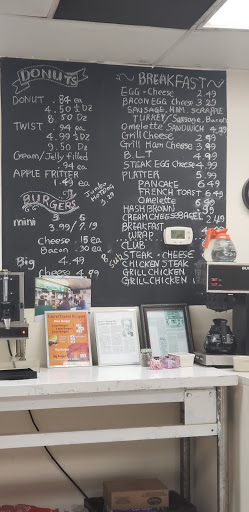 DONUTS
DONUT .84 ea
4.50 ½ Dz
8.50 Dz
TWIST .94 ea
4.99 ½ DZ
9.50 Dz
Cream/Jelly filled
.94 ea
APPLE FRITTER
1.49 ea
BURGERS
mini 6
3.99/7.19
cheese .15 ea
Bacon .30 ea
Big 4.49
cheese 4.99
BREAKFAST
EGG + Cheese 2.49
BACON EGG Cheese 3.29
SAUSAGE, HAM, SCRAPPLE
TURKEY
Omelette SANDWICH 4.99
Grill Cheese 2.99
Grill Ham Cheese 3.99
B.L.T 4.99
STEAK EGG Cheese 4.99
PLATTER 5.99
PANCAKE 6.49
FRENCH TOAST 6.49
Omelette
HASH BROWN
CREAM CHEESE BAGEL
BREAKFAST
WRAP
CLUB
8" Sub
STEAK + CHEESE
CHICKEN STEAK
GRILL CHICKEN
GRILL CHICKEN